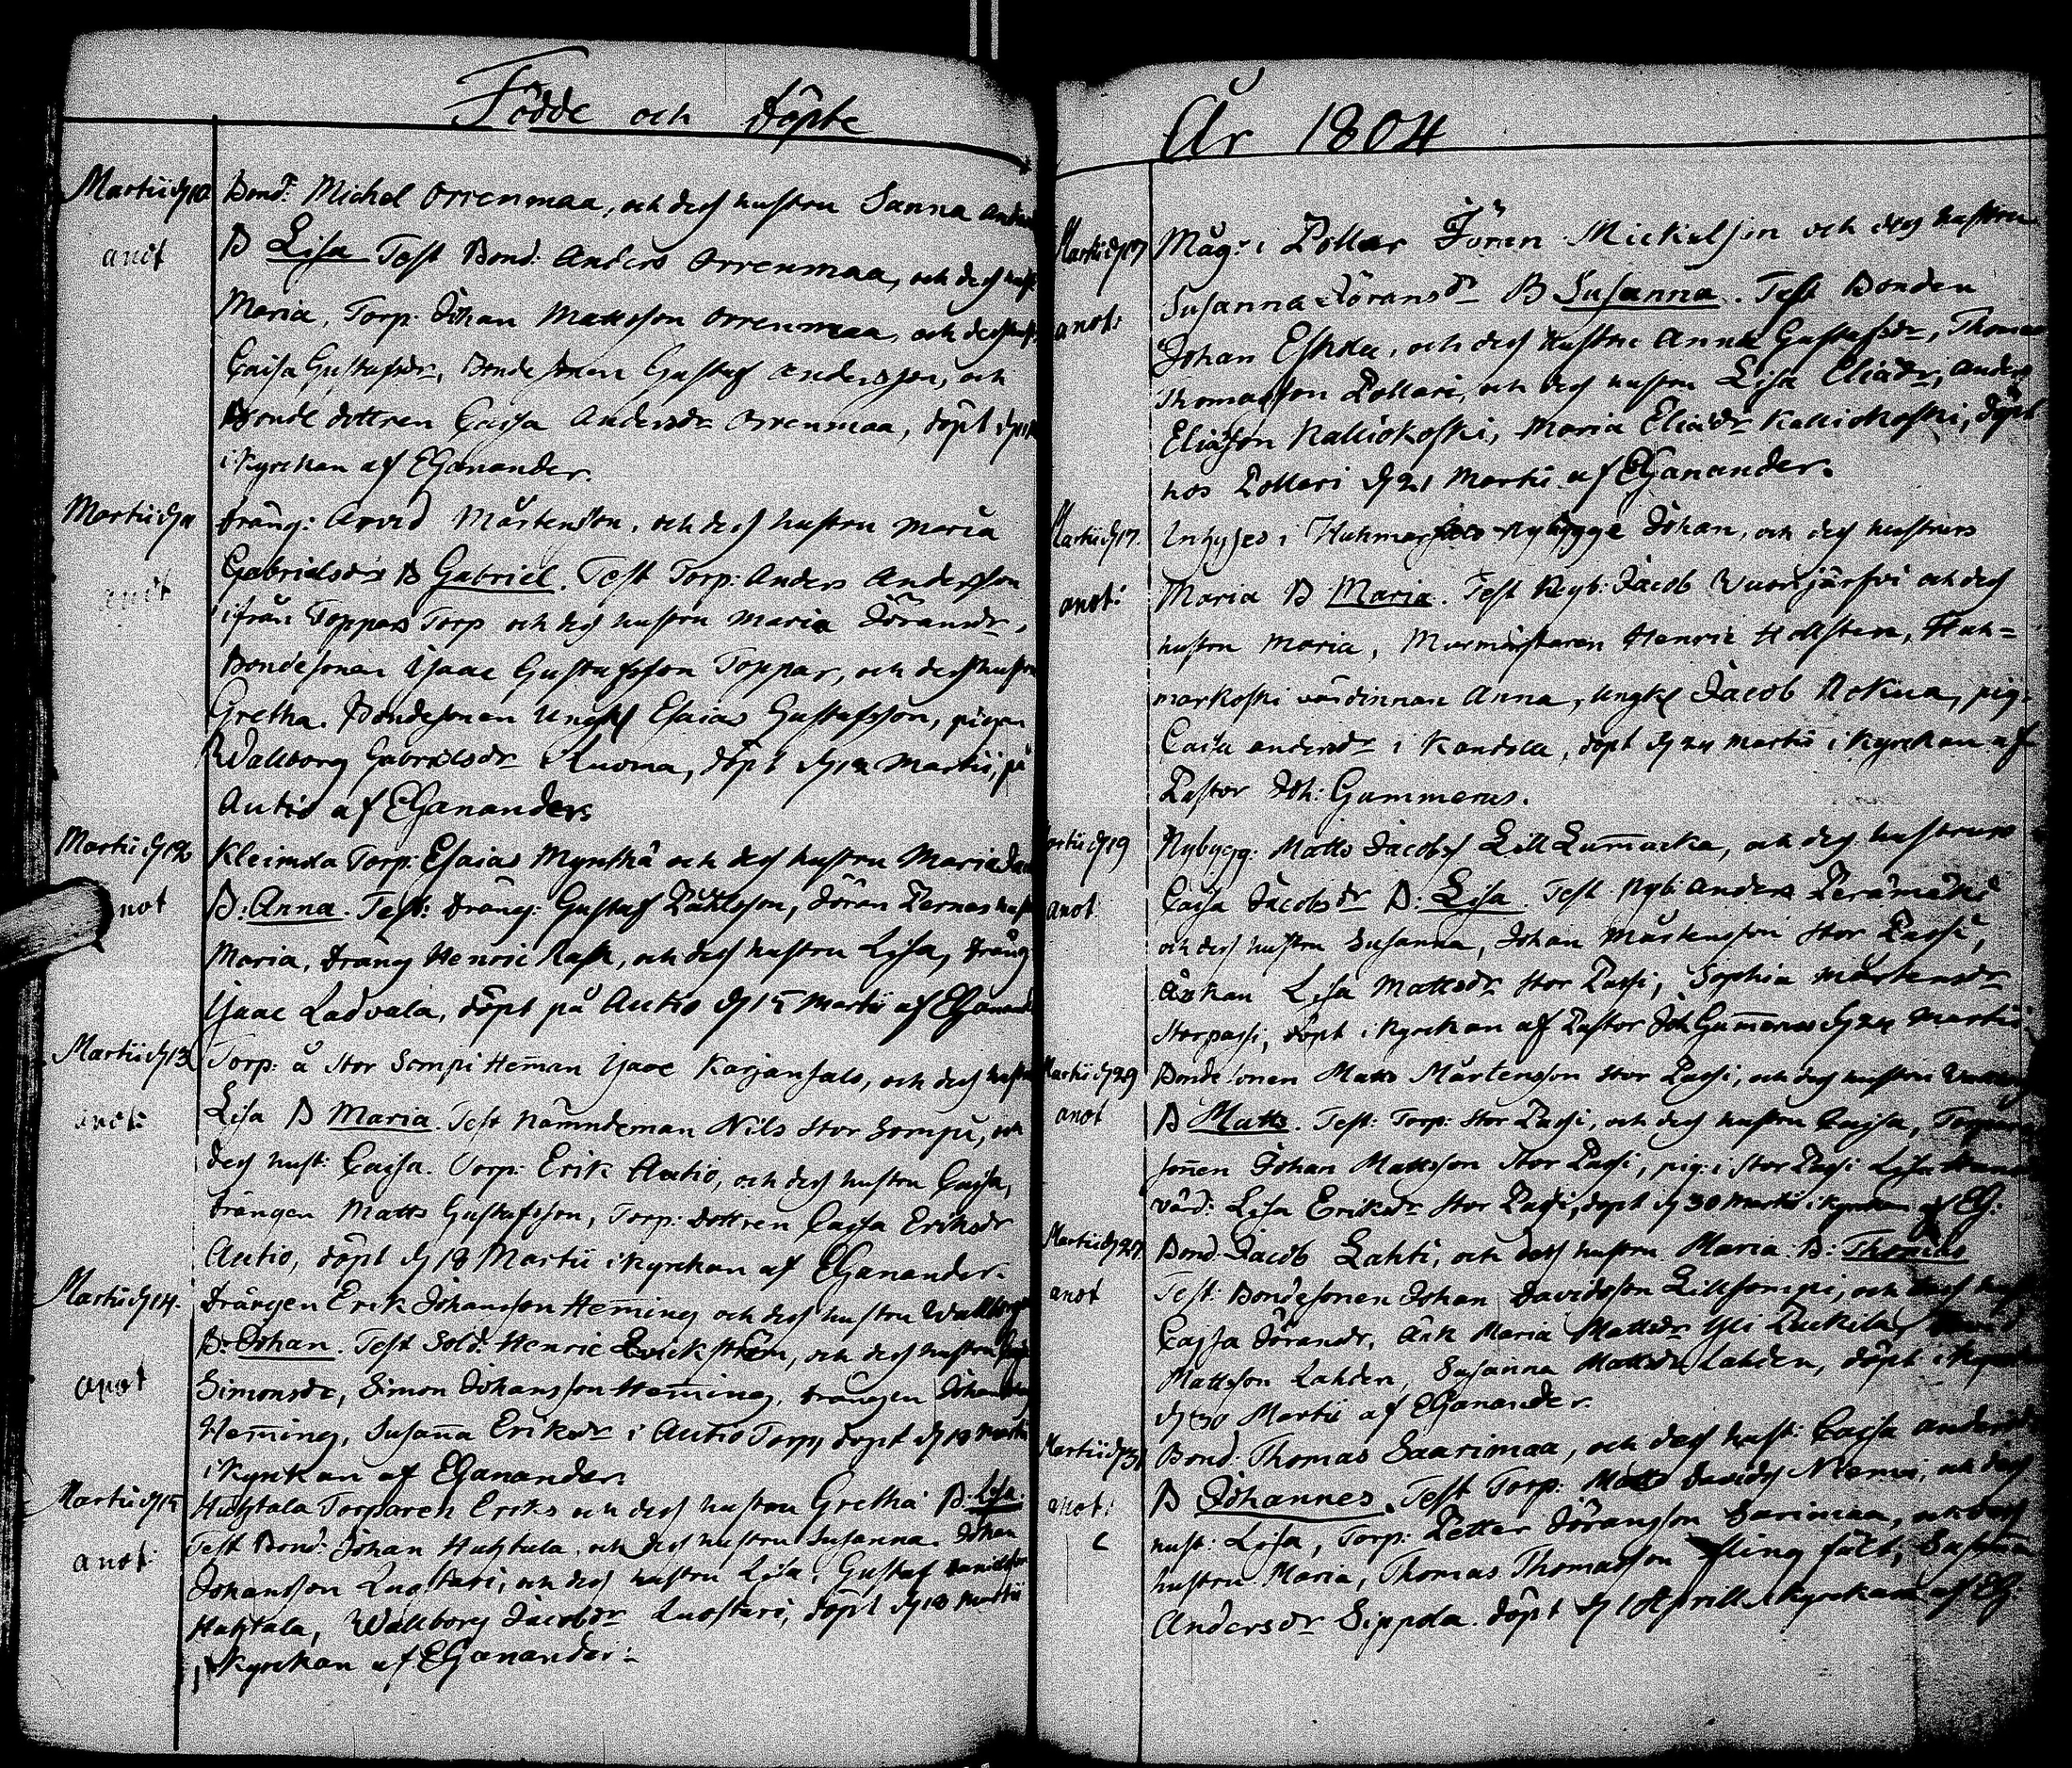 Födde och döpte
Martii d 10. Bond: Michel Orrenmaa, och dess hustru Sanna
anot B Lisa Test Bond: Anders Orrenmaa, och dess hust:
Maria, Torp: Johan Mattsson Orrenmaa, och dess
Caisa Gustafsdr, Bonde sonen Gustaf Andersson, och
Bonde dottren Caisa Andersdr Orrenmaa, döpt
i Kyrckan af EGanander.
Martii d 11 Dräng: Arvid Mårtensson, och dess hustru Maria
anot Gabrielsdr B Gabriel. Test Torp: Anders Andersson
ifrån Toppars Torp och dess hustru Maria Jöransdr,
Bondesonen Isaac Gustafsson Toppar, och dess hustru
Gretha. Bondesonen Ungk Esaias Gustafsson, pigan
Wallborg Gabrielsdr Ruona, döpt d 12 Martii, på
Autio af EGananders
Martii d 12 Kleimola Torp: Esaias Myrskä och dess hustru Maria
anot B: Anna. Test: Dräng: Gustaf, Jöran Pernas
Maria, Dräng Henric Rask, och dess hustru Lisa, Dräng
Isaac Ladvala, döpt på Autio d 15 Martii af EGanand
Martii d 13 Torp: å Stor Sompi Heman Isaac Karjansalo, och dess hustru
anot: Lisa B Maria. Test Nämndeman Nils Stor Sompi, och
dess hust: Caisa. Torp: Erik Autio, och dess hustru Caisa,
Drängen Matts Gustafsson, Torp: dottren Caisa Eriksdr
Autio, döpt d 18 Martii i Kyrckan af EGanander.
Martii d 14. Drängen Erik Johansson Heming och dess hustru Wallborg
B: Johan. Test Sold: Henric, och dess hustru
anot Simonsdr, Simon Johansson Heming, Drängen Johan
Heming, Susana Eriksdr i Autio Torp, döpt d 18 Martii
i Kyrkan af EGanander.
Martii d 15 Huhtala Torparen Eriks och dess hustru Gretha B: Lisa.
Test Bond: Johan Huhtala, och dess hustru Susanna. Johan
anot: Johansson Luostari, och dess hustru Lisa, Gustaf
Huhtala, Wallborg Jacobsdr Luostari, döpt d 18 Martii
i Kyrckan af EGanander:
År 1804
Martii d 17 Måg: i Pollar Jören Mickelsson och dess hustru
Susanna Göransdr B Susanna. Test Bonden
anot: Johan Eskola, och dess hustru Anna Gustafsdr, Thomas
Thomasson Pollari, och dess hustru Lisa Eliadr, Anders
Eliasson Kalliokoski, Maria Eliadr Kalliokoski, döpt
hos Pollari d 21 Martii af EGanander.
Martii d 17. Inhyses i nybygge Johan, och dess hustrurs
anot: Maria B Maria. Test Nyb: Jacob Vuorijärfvi och dess
hustru Maria, Murmästaren Henric Hollsten, Huh=
markoski värdinnan Anna, Ungk Jacob Rokua, pig:
Caisa Andersdr i Kandola, döpt d 24 Martii i Kyrckan af
Pastor Joh: Gummerus.
Martii d 19 Nybygg: Matts Jacobss Lill Lumacka, och dess hustrurs
anot Caisa Jacobsdr B: Lisa. Test Nyb: Anders Perämäki
och dess hustru Susanna, Johan Mårtensson Stor Passi,
Änkan Lisa Mattsdr Stor Passi, Sophia Mårtensdr
Storpassi, döpt i Kyrckan af Pastor Joh Gumerus d 24 Martii
Martii d 29 Bonde sonen Matts Mårtensson Stor Passi, och dess hustru
anot B Matts. Test: Torp: Stor Passi, och dess hustru Caisa,
sonen Johan Mattsson Stor Passi, pig: i Stor Passi Lisa
värd: Lisa Eriksdr Stor Passi, döpt d 30 Martii i Kyrckan af EG:
Martii d 27 Bond: Jacob Lahti, och dess hustru Maria B: Thomas
anot Test: Bondesonen Johan Davidsson Lillsompi, och dess
Cajsa Jöransdr, Änk Maria Mattsdr Yli Puckila,
Mattsson Lahden, Susanna Mattsdr Lahden, döpt i Kyrckan
d 30 Martii af EGanander.
Martii d 31 Bond: Thomas Saarimaa, och dess hust: Caisa Andersdr
anot: B Johannes. Test Torp: Matts Davidss Niemi, och dess
hust: Lisa, Torp: Petter Jöransson Sarimaa, och dess
hustru Maria, Thomas Thomasson, Susana
Andersdr Sippola. döpt d 1 Aprill i Kyrckan af EG: